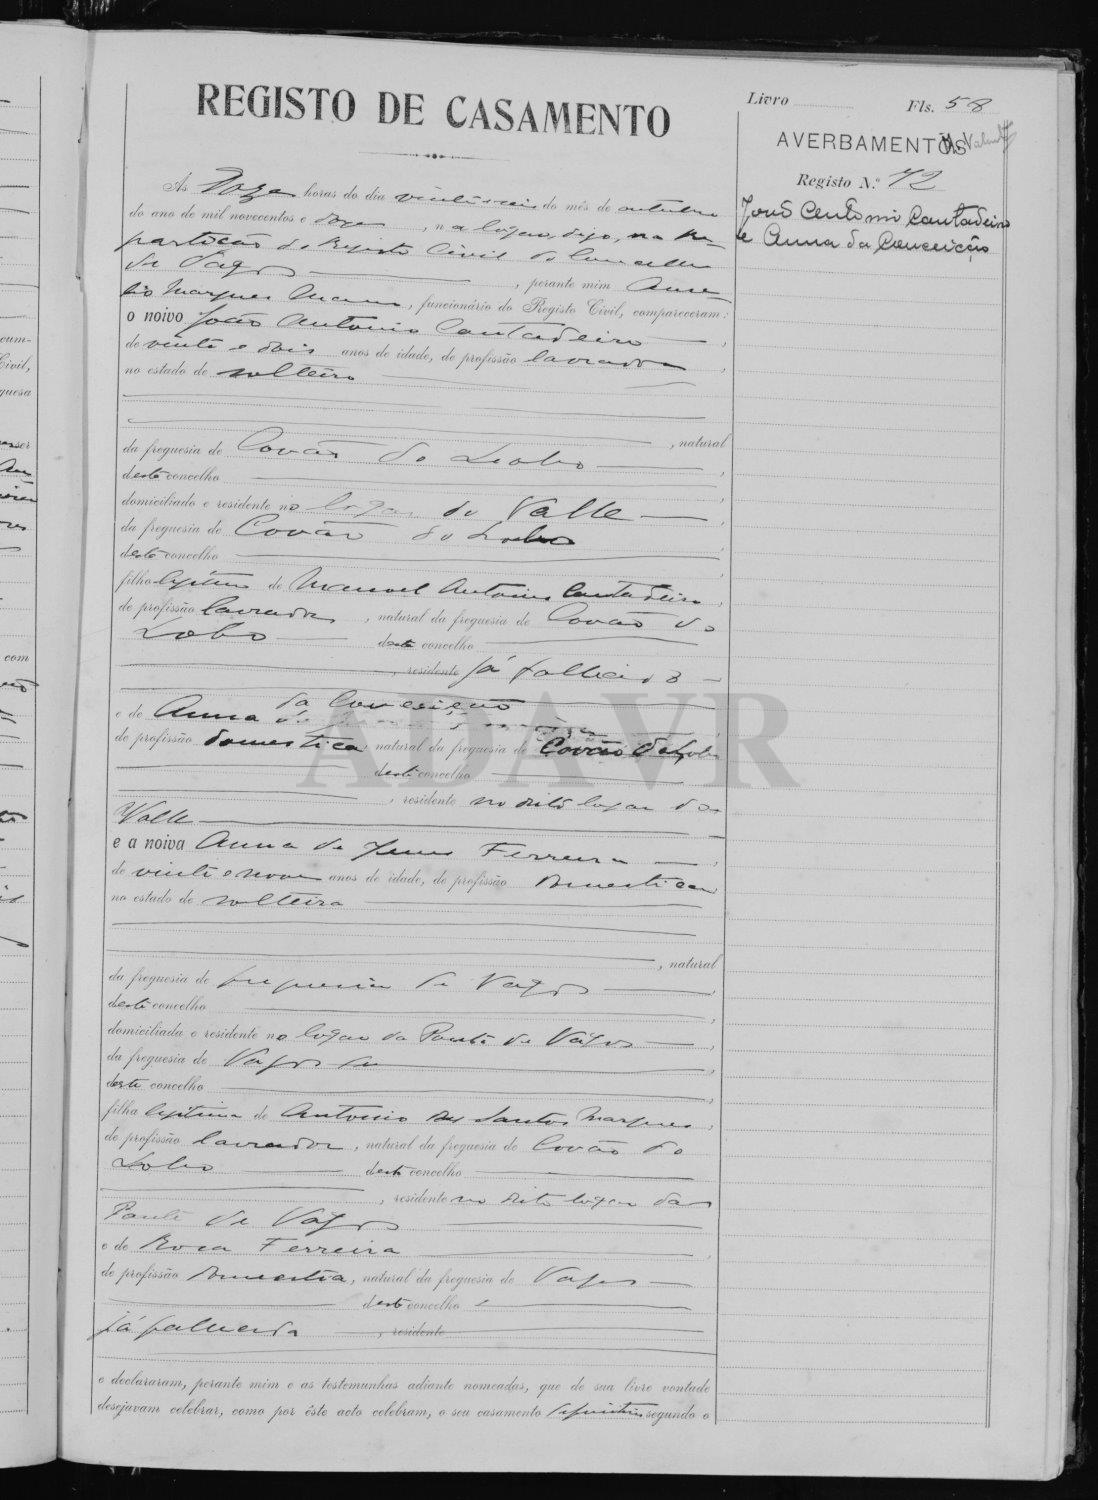 REGISTO DE CASAMENTO
Livro
Fls. 58
AVERBAMENTOS
Registo N.º 72
João António Cantadeiro
e Anna da Conceição
Ás doze horas do dia vinte e seis do mês de outubro
do ano de mil novecentos e doze, no lugar, digo, na Re-
partição do Registo Civil do Concelho
de Vagos, perante mim
Marques, funcionário do Registo Civil, compareceram:
o noivo João Antonio Cantadeiro,
de vinte e dois anos de idade, de profissão lavrador
no estado de solteiro
, natural
da freguesia de Covão do Lobo,
deste concelho
domiciliado e residente no logar do Valle,
da freguesia de Covão do Lobo
deste concelho
filho legitimo de Manoel Antonio Cantadeiro,
de profissão lavrador, natural da freguesia de Covão do
Lobo deste concelho
, residente já fallecido
da Conceição
e de Anna de
de profissão domestica, natural da freguesia de Covão do Lobo
deste concelho
, residente no dito logar do
Valle
e a noiva Anna de Jesus Ferreira,
de vinte e nove anos de idade, de profissão domestica
no estado de solteira
, natural
da freguesia de freguesia de Vagos,
deste concelho
domiciliada e residente no logar da Ponte de Vagos,
da freguesia de Vagos
deste concelho
filha legitima de Antonio dos Santos Marques,
de profissão lavrador, natural da freguesia de Covão do
Lobo deste concelho
, residente no dito logar da
Ponte de Vagos
e de Rosa Ferreira,
de profissão domestica, natural da freguesia de Vagos
deste concelho
já fallecida, residente
e declararam, perante mim e as testemunhas adiante nomeadas, que de sua livre vontade
desejavam celebrar, como por êste acto celebram, o seu casamento definitivo segundo o
ADAVR